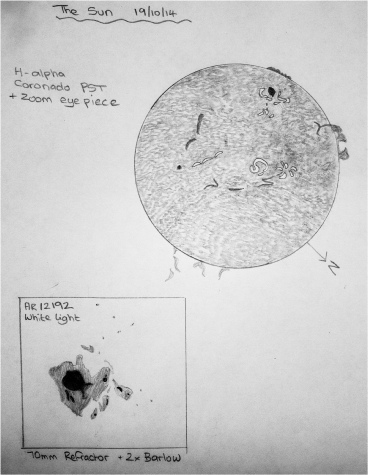 The Sun 19/10/14
H-alpha
Coronado PST
+ Zoom eyepiece
N
AR12192
White light
70mm Refractor + 2x Barlow